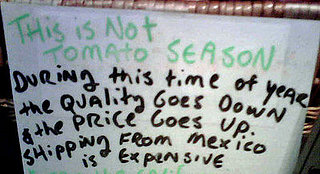 THIS is NOT
TOMATO SEASON
DURING this time of YEAR
the QUALITY GOES DOWN
& the PRICE GOES UP.
SHIPPING FROM MEXICO
is EXPENSIVE